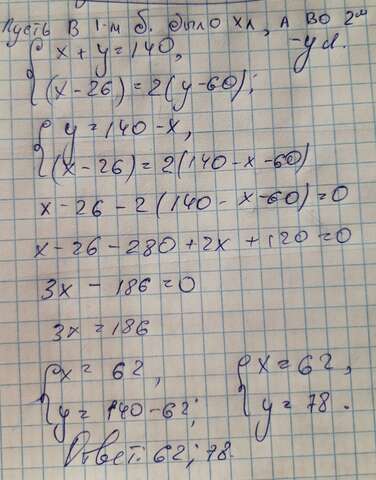 Пусть в 1-м б. было хл, а во 2м - у л.
{ x + y = 140,
(x - 26) = 2(y - 60);
{ y = 140 - x,
(x - 26) = 2(140 - x - 60)
x - 26 - 2(140 - x - 60) = 0
x - 26 - 280 + 2x + 120 = 0
3x - 186 = 0
3x = 186
{ x = 62, { x = 62,
y = 140 - 62; y = 78.
Ответ: 62; 78.